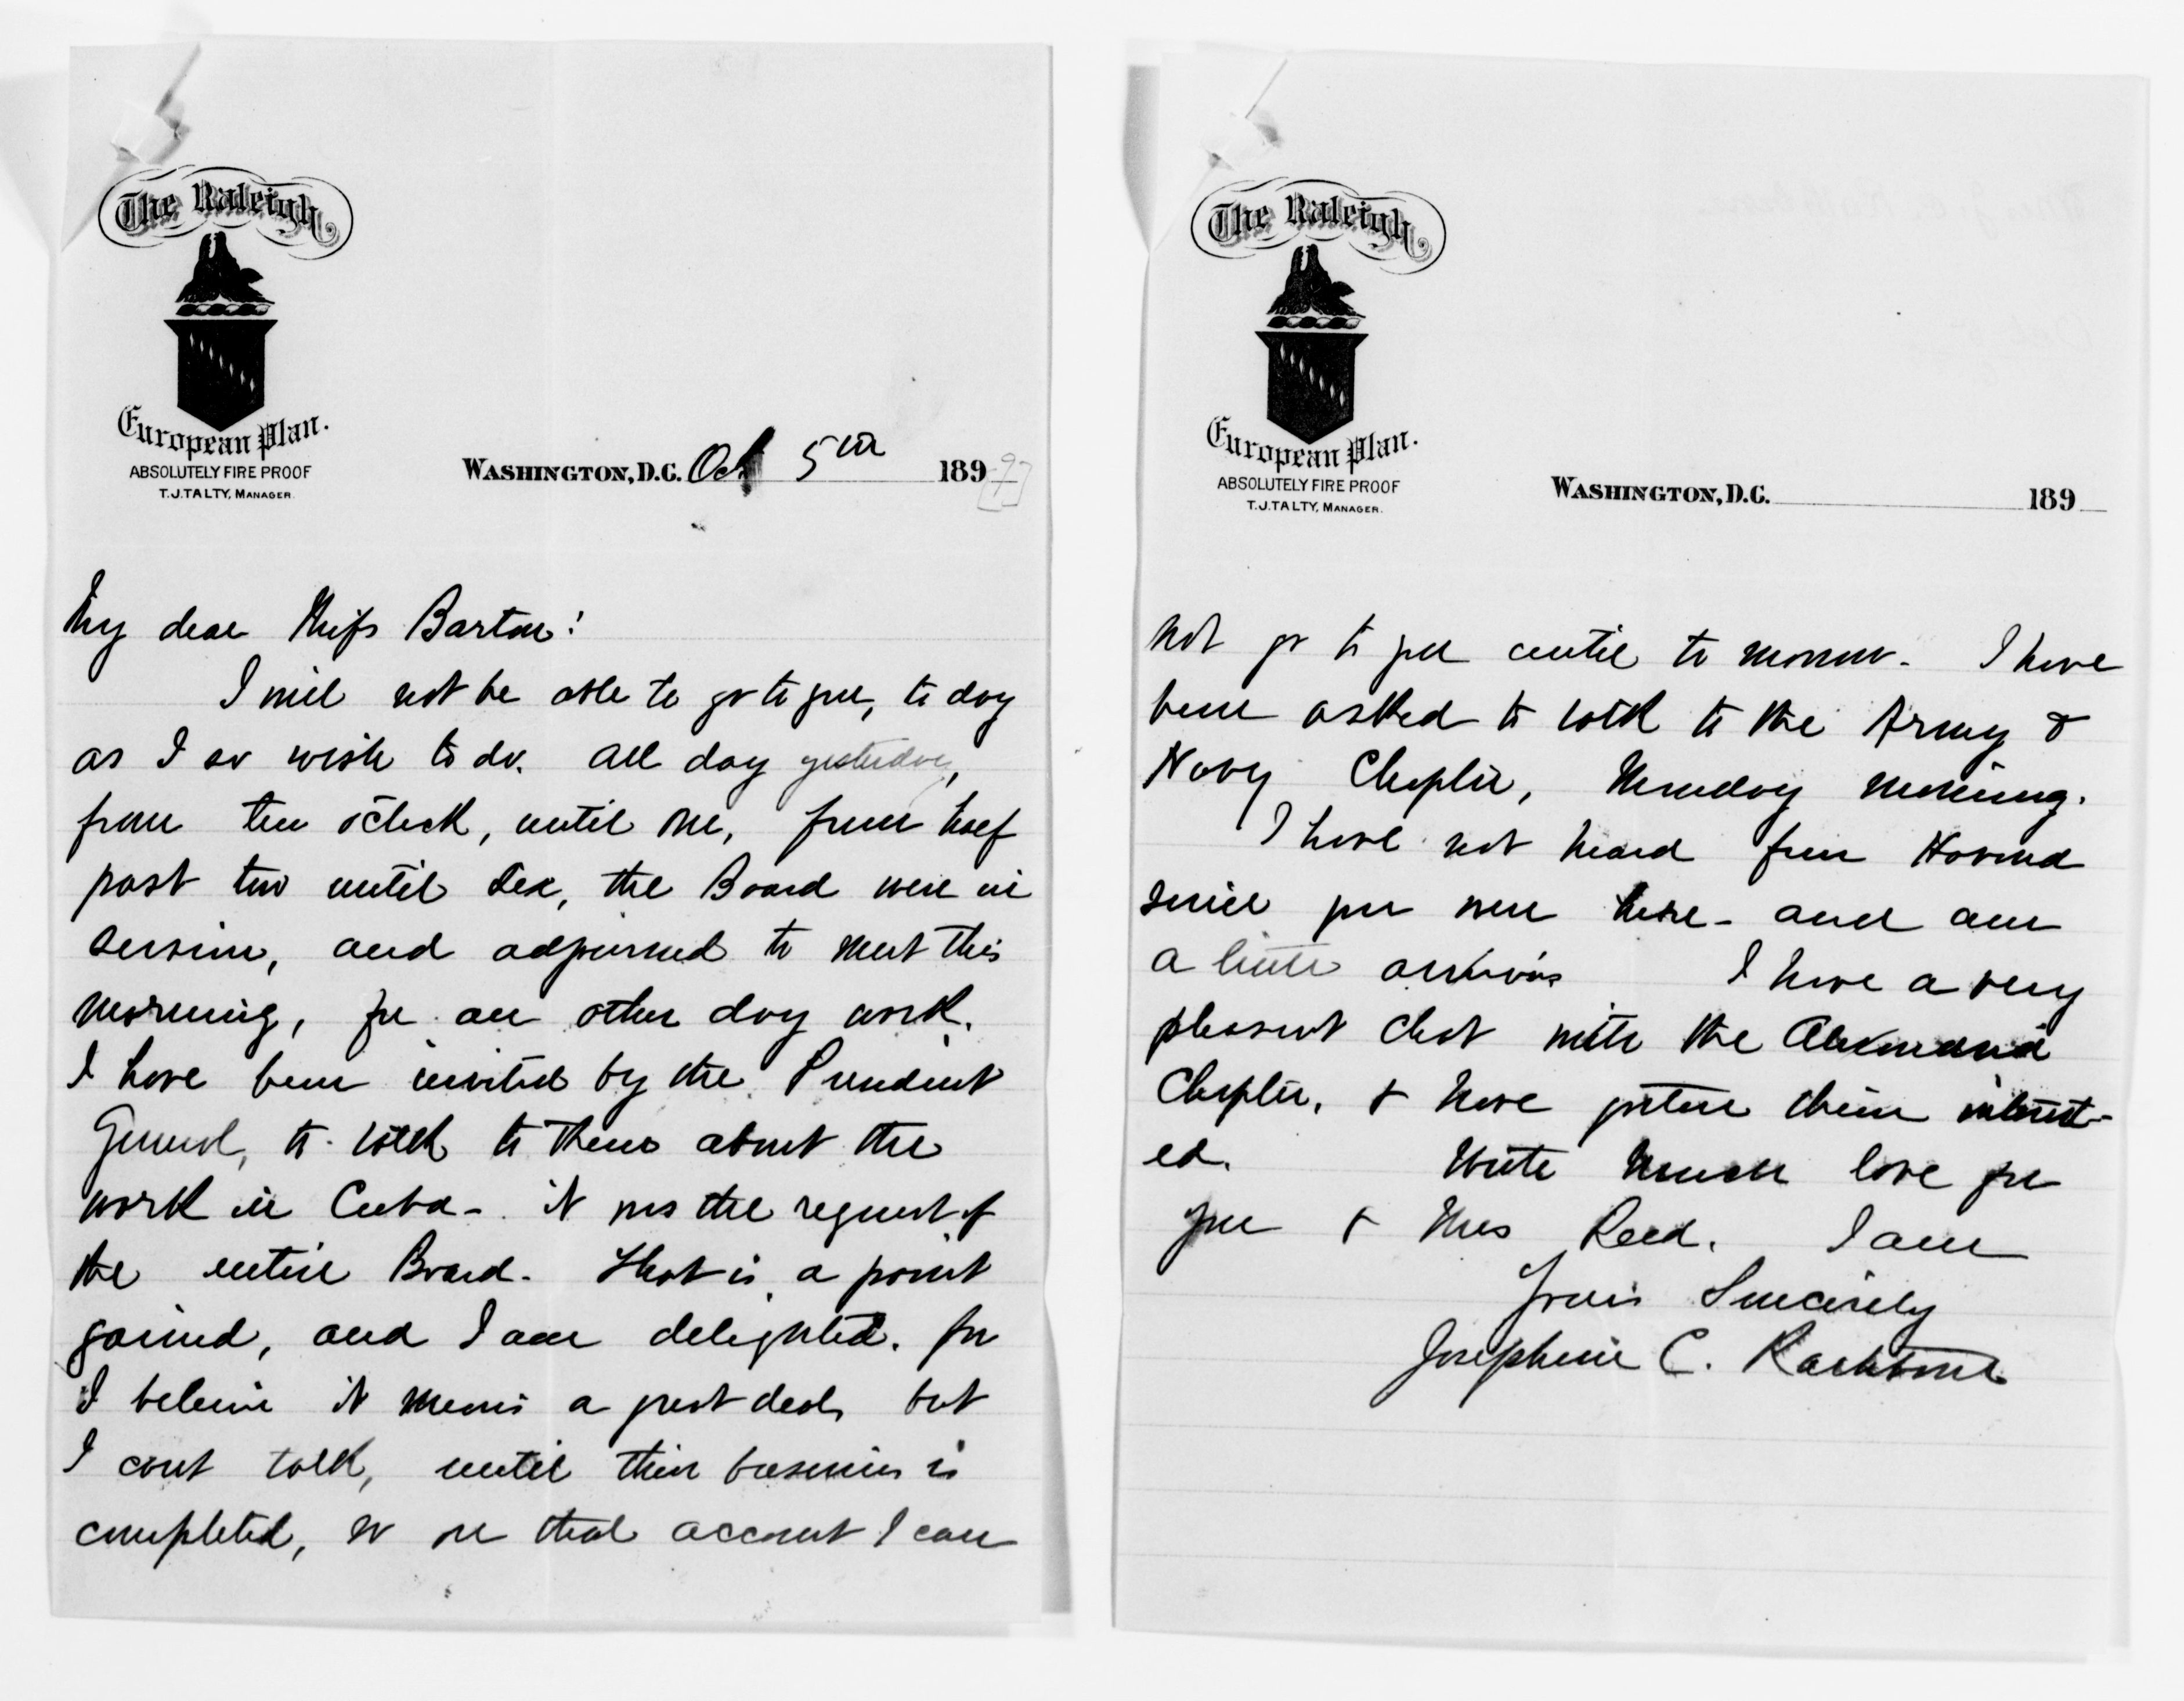 The Raleigh.
European Plan.
ABSOLUTELY FIRE PROOF
T.J. TALTY, MANAGER.
WASHINGTON, D.C. Oct 5th 189[9?]
My dear Miss Barton:
I will not be able to go to you, to day
as I so wish to do. All day yesterday,
from ten o'clock, until one, from half
past two until six, the Board were in
session, and adjourned to meet this
morning, for an other day work.
I have been invited by the President
General, to talk to them about the
work in Cuba - it was the request of
the entire Board. That is a point
gained, and I am delighted. for
I believe it means a great deal, but
I cant talk, until their business is
completed, so on that account I can
The Raleigh.
European Plan.
ABSOLUTELY FIRE PROOF
T.J. TALTY, MANAGER.
WASHINGTON, D.C. 189
not go to you until to morrow. I have
been asked to talk to the Army &
Navy Chapter, Monday morning.
I have not heard from
since you were here - and am
a little anxious I have a very
pleasant chat with the Alexandria
Chapter, & have gotten them interest-
ed. With much love for
you & Mrs Reed. I am
Yours Sincerely
Josephine C. Rathbone